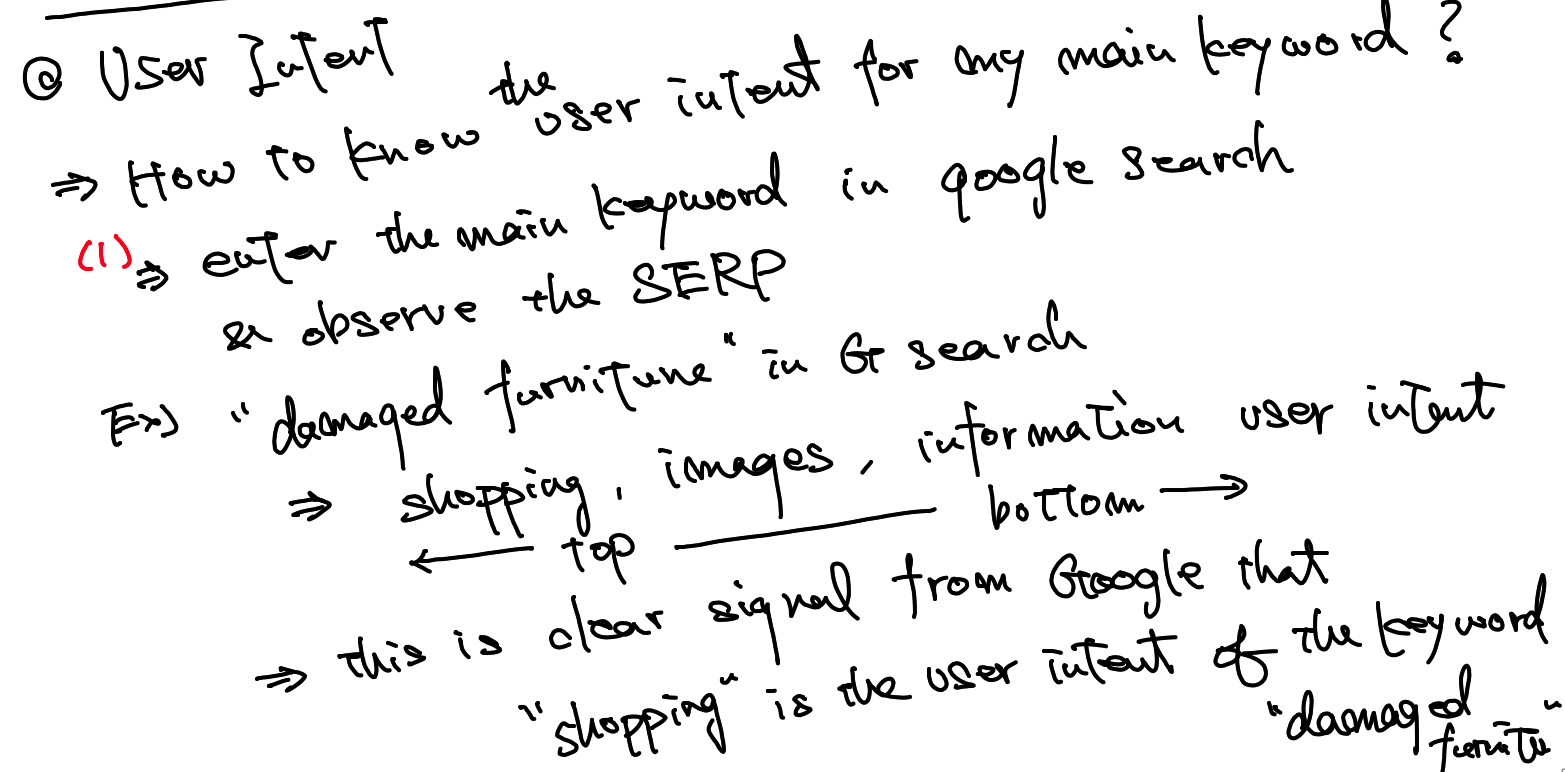 @ User Intent
⇒ How to know the user intent for my main keyword?
(1) ⇒ enter the main keyword in google search
& observe the SERP
Ex) "damaged furniture" in G search
⇒ shopping, images, information user intent
← top —— bottom →
⇒ this is clear signal from Google that
"shopping" is the user intent of the keyword
"damaged
furnitu"